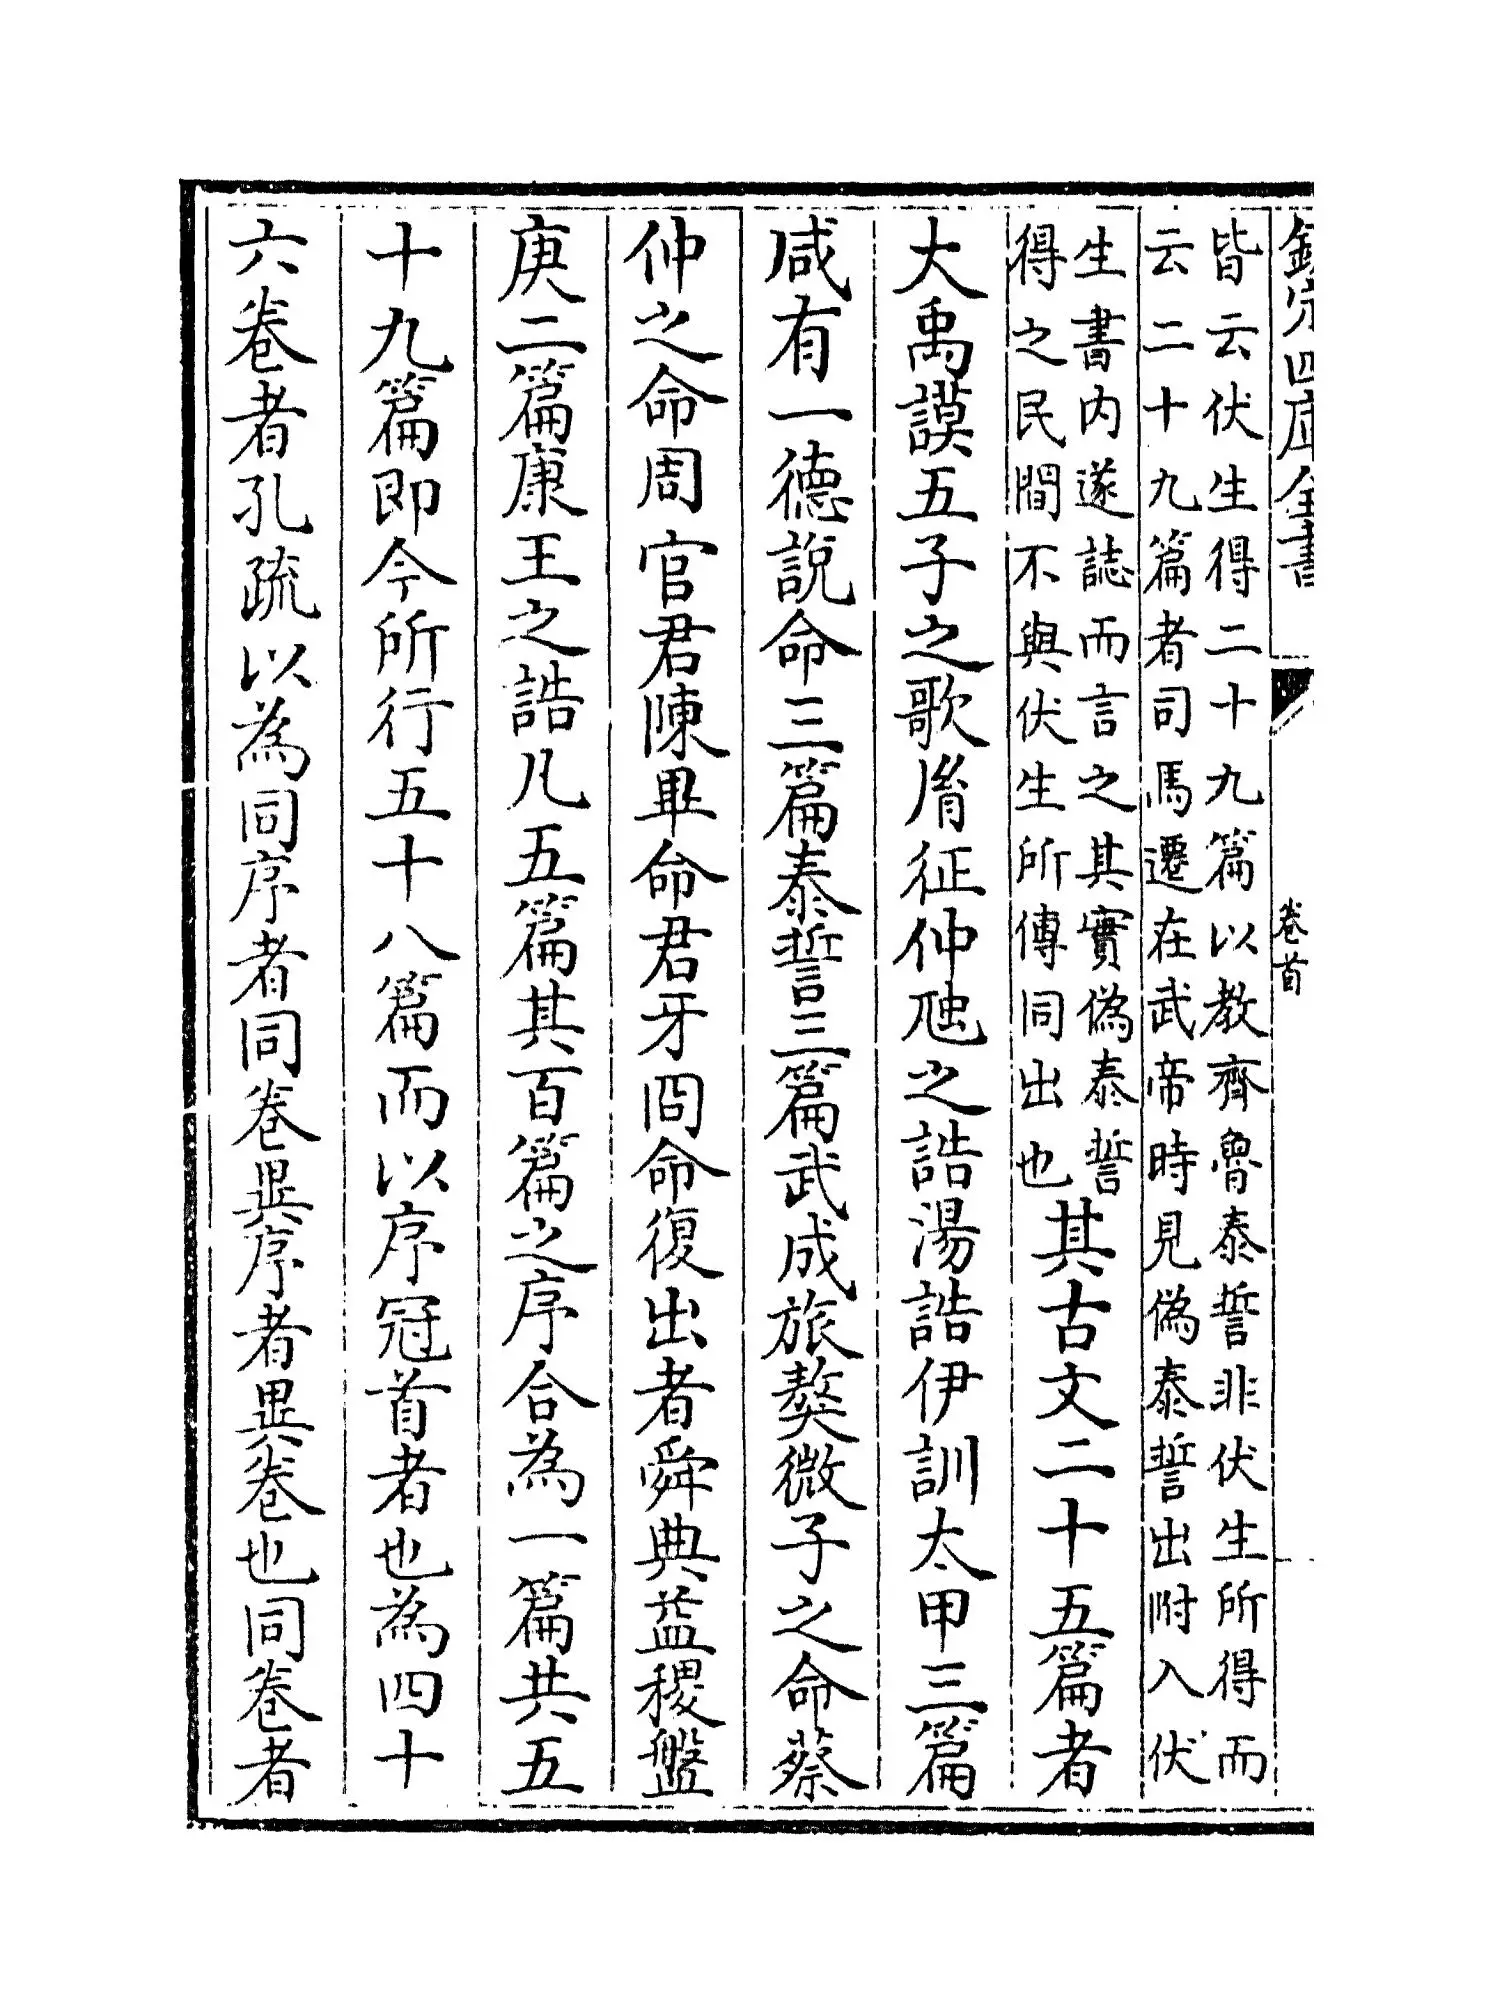 欽定四庫全書
卷首
皆云伏生得二十九篇以教齊魯泰誓非伏生所得而
云二十九篇者司馬遷在武帝時見偽泰誓出附入伏
生書内遂誌而言之其實偽泰誓
得之民間不與伏生所傳同出也
其古文二十五篇者
大禹謨五子之歌胤征仲虺之誥湯誥伊訓太甲三篇
咸有一德說命三篇泰誓三篇武成旅獒微子之命蔡
仲之命周官君陳畢命君牙冏命復出者舜典益稷盤
庚二篇康王之誥凡五篇其百篇之序合為一篇共五
十九篇即今所行五十八篇而以序冠首者也為四十
六卷者孔疏以為同序者同卷異序者異卷也同卷者